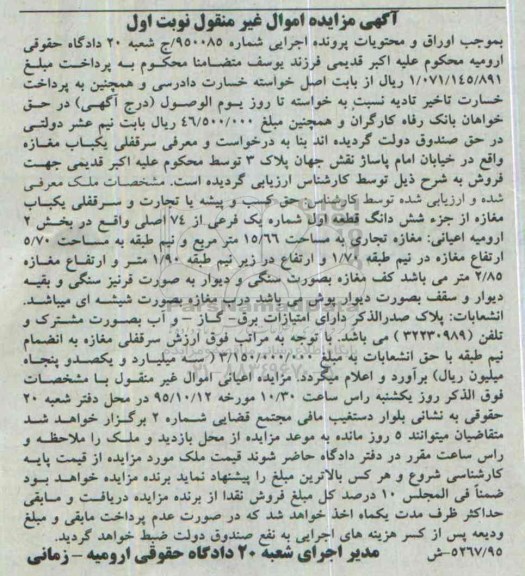 آگهی مزایده اموال غیر منقول نوبت اول
بموجب اوراق و محتویات پرونده اجرایی شماره ۹۵۰۰۸۵/ج شعبه ۲۰ دادگاه حقوقی
ارومیه محکوم علیه اکبر قدیمی فرزند یوسف متضامنا محکوم به پرداخت مبلغ
۱/۰۷۱/۱۴۵/۸۹۱ ریال از بابت اصل خواسته خسارت دادرسی و همچنین به پرداخت
خسارت تاخیر تادیه نسبت به خواسته تا روز یوم الوصول (درج آگهی) در حق
خواهان بانک رفاه کارگران و همچنین مبلغ ۴۶/۵۰۰/۰۰۰ ریال بابت نیم عشر دولتی
در حق صندوق دولت گردیده اند بنا به درخواست و معرفی سرقفلی یکباب مغازه
واقع در خیابان امام پاساژ نقش جهان پلاک ۳ توسط محکوم علیه اکبر قدیمی جهت
فروش به شرح ذیل توسط کارشناس ارزیابی گردیده است. مشخصات ملک معرفی
شده و ارزیابی شده توسط کارشناس: حق کسب و پیشه یا تجارت و سرقفلی یکباب
مغازه از جزء شش دانگ قطعه اول شماره یک فرعی از ۷۴ اصلی واقع در بخش ۲
ارومیه اعیانی: مغازه تجاری به مساحت ۱۵/۶۶ متر مربع و نیم طبقه به مساحت ۵/۷۰
ارتفاع مغازه در نیم طبقه ۱/۷۰ و ارتفاع در زیر نیم طبقه ۱/۹۰ متر و ارتفاع مغازه
۲/۸۵ متر می باشد کف مغازه بصورت سنگی و دیوار به صورت قرنیز سنگی و بقیه
دیوار و سقف بصورت دیوار پوش می باشد درب مغازه بصورت شیشه ای میباشد.
انشعابات: پلاک صدرالذکر دارای امتیازات برق- گاز - و آب بصورت مشترک و
تلفن (۳۲۲۳۰۹۸۹) می باشد. با توجه به مراتب فوق ارزش سرقفلی مغازه به انضمام
نیم طبقه با حق انشعابات به مبلغ ۳/۱۵۰/۰۰۰/۰۰۰ (سه میلیارد و یکصدو پنجاه
میلیون ریال) برآورد و اعلام میگردد. مزایده اعیانی اموال غیر منقول با مشخصات
فوق الذکر روز یکشنبه راس ساعت ۱۰/۳۰ مورخه ۹۵/۱۰/۱۲ در محل دفتر شعبه ۲۰
حقوقی به نشانی بلوار دستغیب مافی مجتمع قضایی شماره ۲ برگزار خواهد شد
متقاضیان میتوانند ۵ روز مانده به موعد مزایده از محل بازدید و ملک را ملاحظه و
راس ساعت مقرر در دفتر دادگاه حاضر شوند قیمت ملک مورد مزایده از قیمت پایه
کارشناسی شروع و هر کس بالاترین مبلغ را پیشنهاد نماید برنده مزایده خواهد بود
ضمناً فی المجلس ۱۰ درصد کل مبلغ فروش نقدا از برنده مزایده دریافت و مابقی
حداکثر ظرف مدت یکماه اخذ خواهد شد که در صورت عدم پرداخت مابقی و مبلغ
ودیعه پس از کسر هزینه های اجرایی به نفع صندوق دولت ضبط خواهد گردید.
۵۲۶۷/۹۵-ش مدیر اجرای شعبه ۲۰ دادگاه حقوقی ارومیه - زمانی